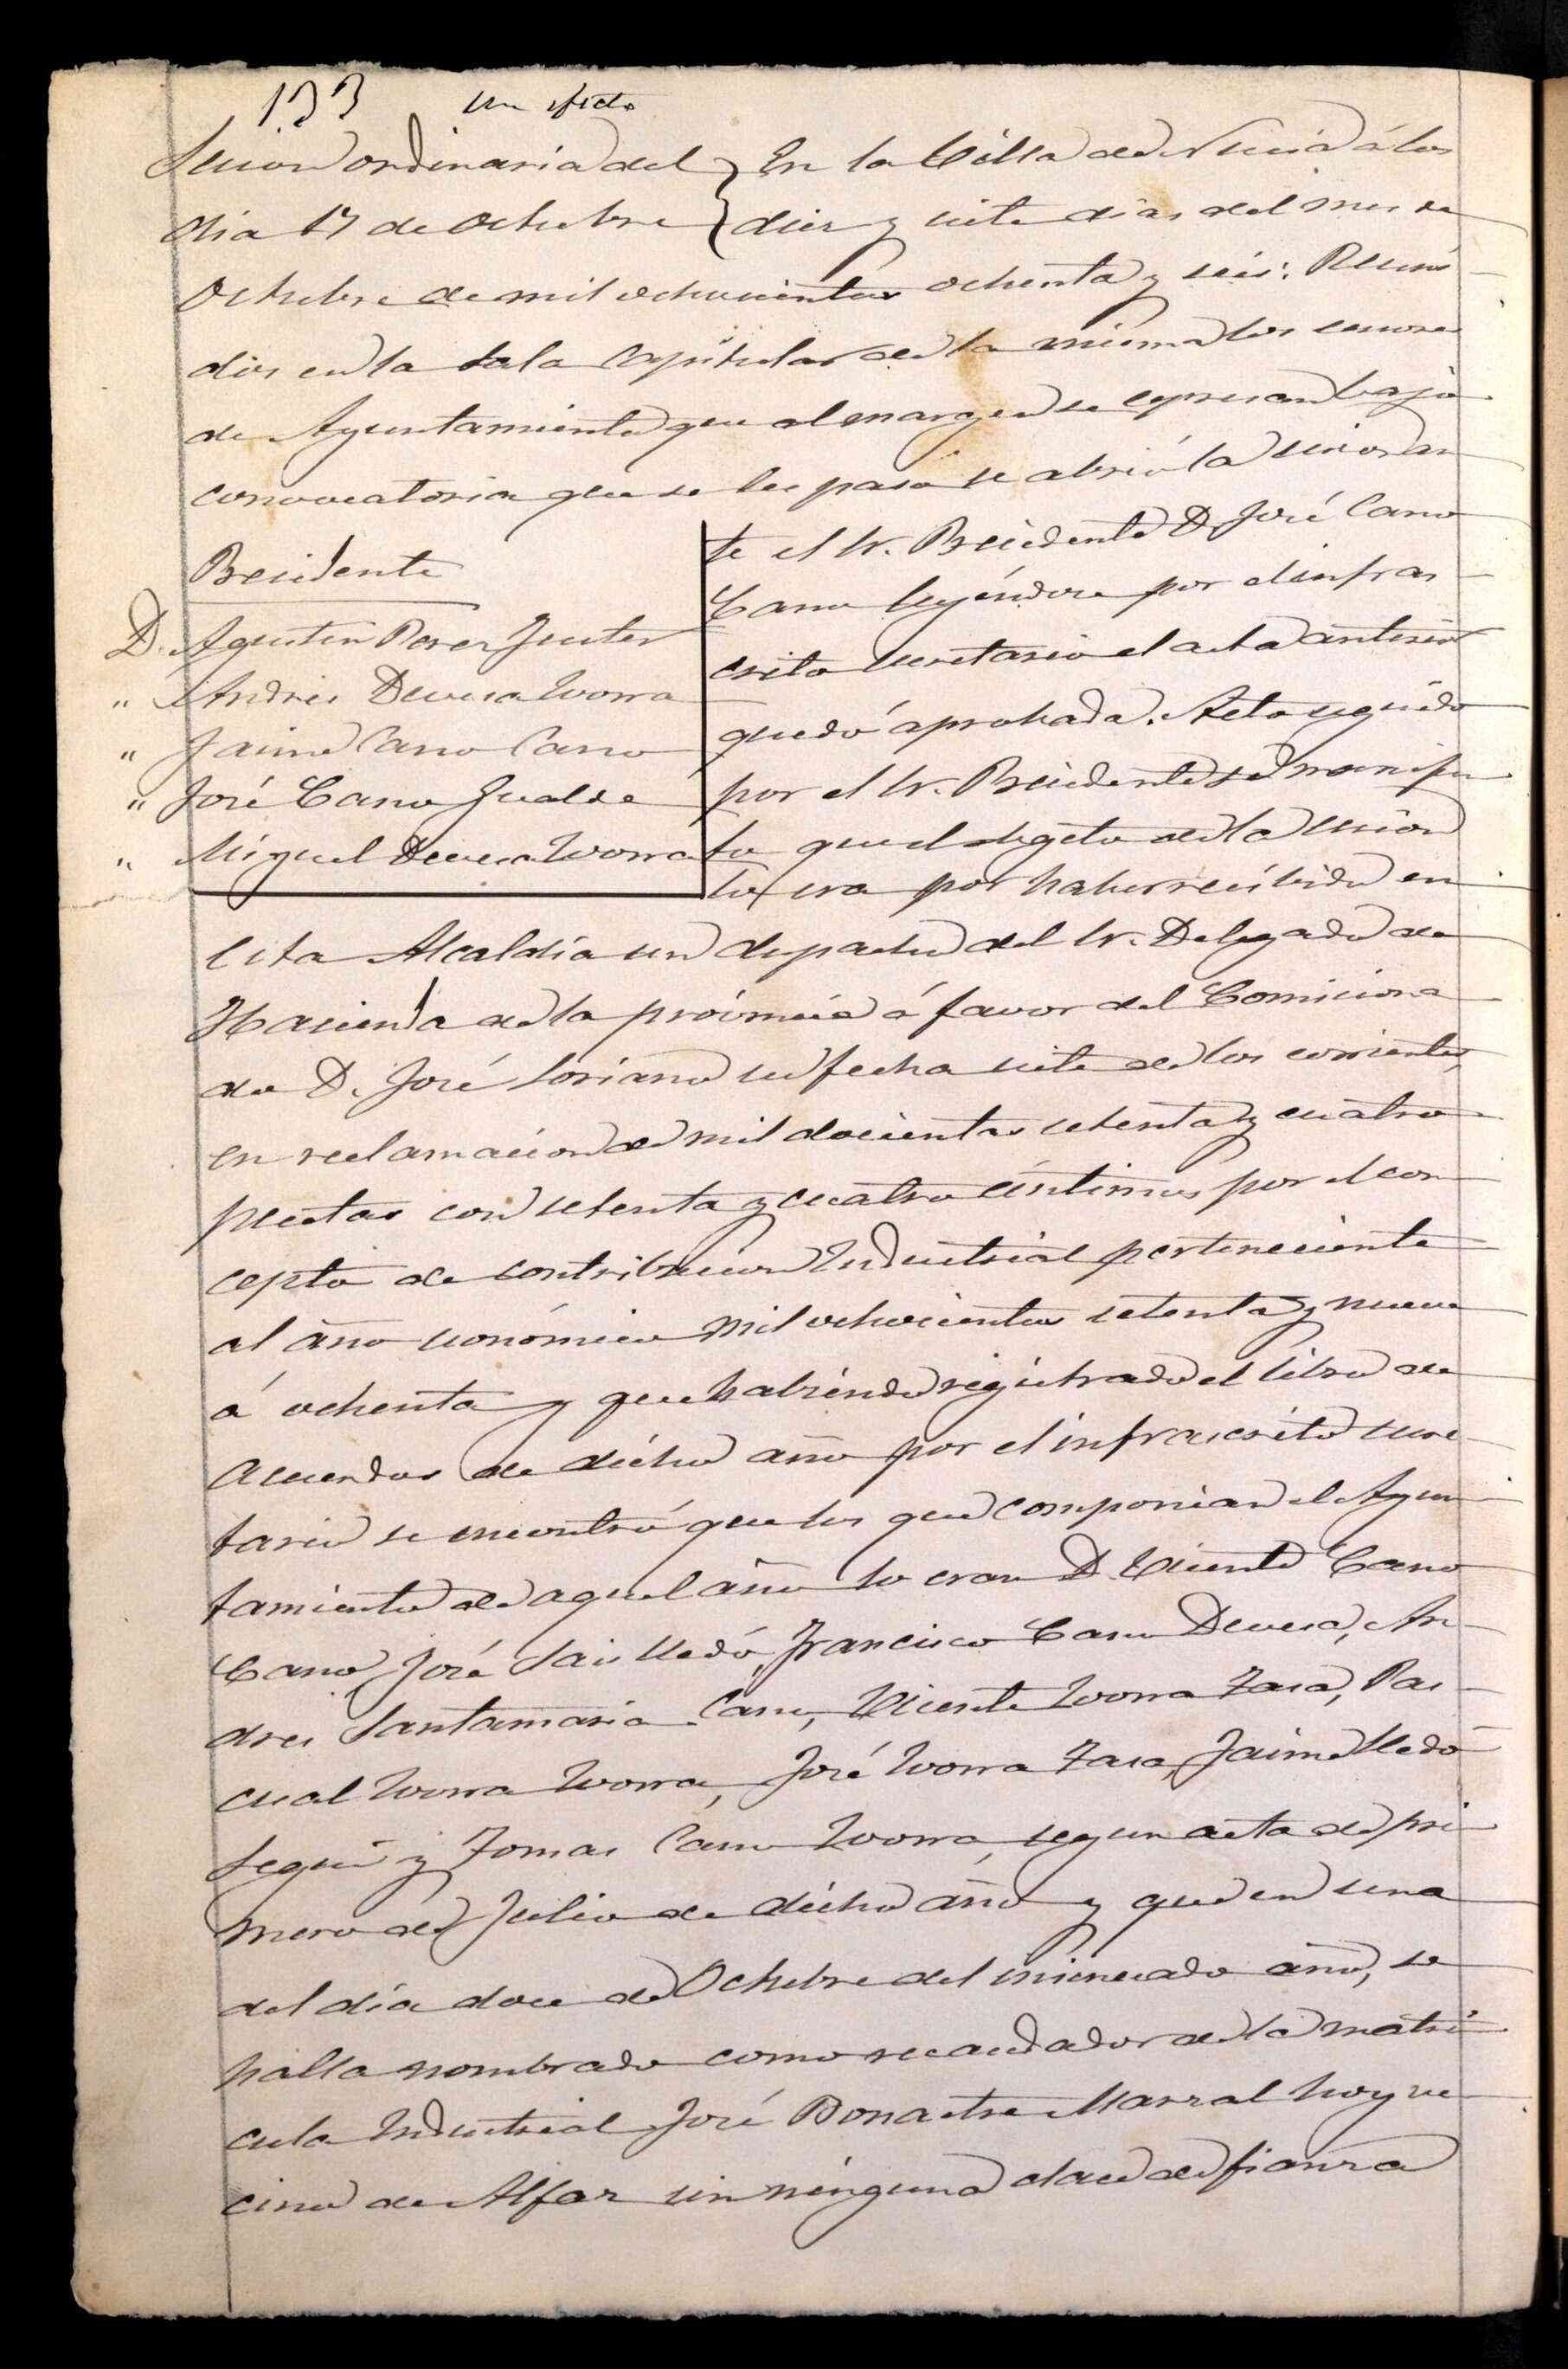 133
Sesion ordinaria del
dia 17 de Octubre
En la Villa de Nucia á los
diez y siete dias del mes de
Octubre de mil ochocientos ochenta y seis: Reuni-
dos en la sala Capitular de la misma los señores
de Ayuntamiento que al margen se espresan bajo
convocatoria que se les pasó se abrió la sesion an-
Presidente
D. Agustin Perez Fuster
" Andres Devesa Ivorra
" Jaime Cano Cano
" José Cano Gualde
" Miguel Devesa Ivorra
te el Sr. Presidente D. José Cano
Cano leyéndose por el infras-
crito Secretario el acta anterior
quedó aprobada. Acto seguido
por el Sr. Presidente se manifes
to que el obgeto de la sesion
lo era por haber recibido en
esta Alcaldia un despacho del Sr. Delegado de
Hacienda de la provincia á favor del Comisiona
do D. José Soriano su fecha siete de los corrientes,
en reclamacion de mil docientas setenta y cuatro
pesetas con setenta y cuatro céntimos por el con
cepto de contribucion Industrial perteneciente
al año económico mil ochocientos setenta y nueve
á ochenta y que habiendo registrado el libro de
acuerdos de dicho año por el infrascrito secre-
tario se encontró que los que componian el Ayun-
tamiento de aquel año lo eran D. Vicente Cano
Cano, José Sais Lledó, Francisco Cano Devesa, An-
dres Santamaria Cano, Vicente Ivorra Zara, Pas-
cual Ivorra Ivorra, José Ivorra Zara, Jaime Lledó
Segui y Tomas Cano Ivorra, segun acta de pri-
mero de Julio de dicho año y que en una
del dia doce de Octubre del mencionado año, se
halla nombrado como recaudador de la matri-
cula Industrial José Bonastre Marzal hoy ve-
cino de Alfaz sin ninguna clase de fianza